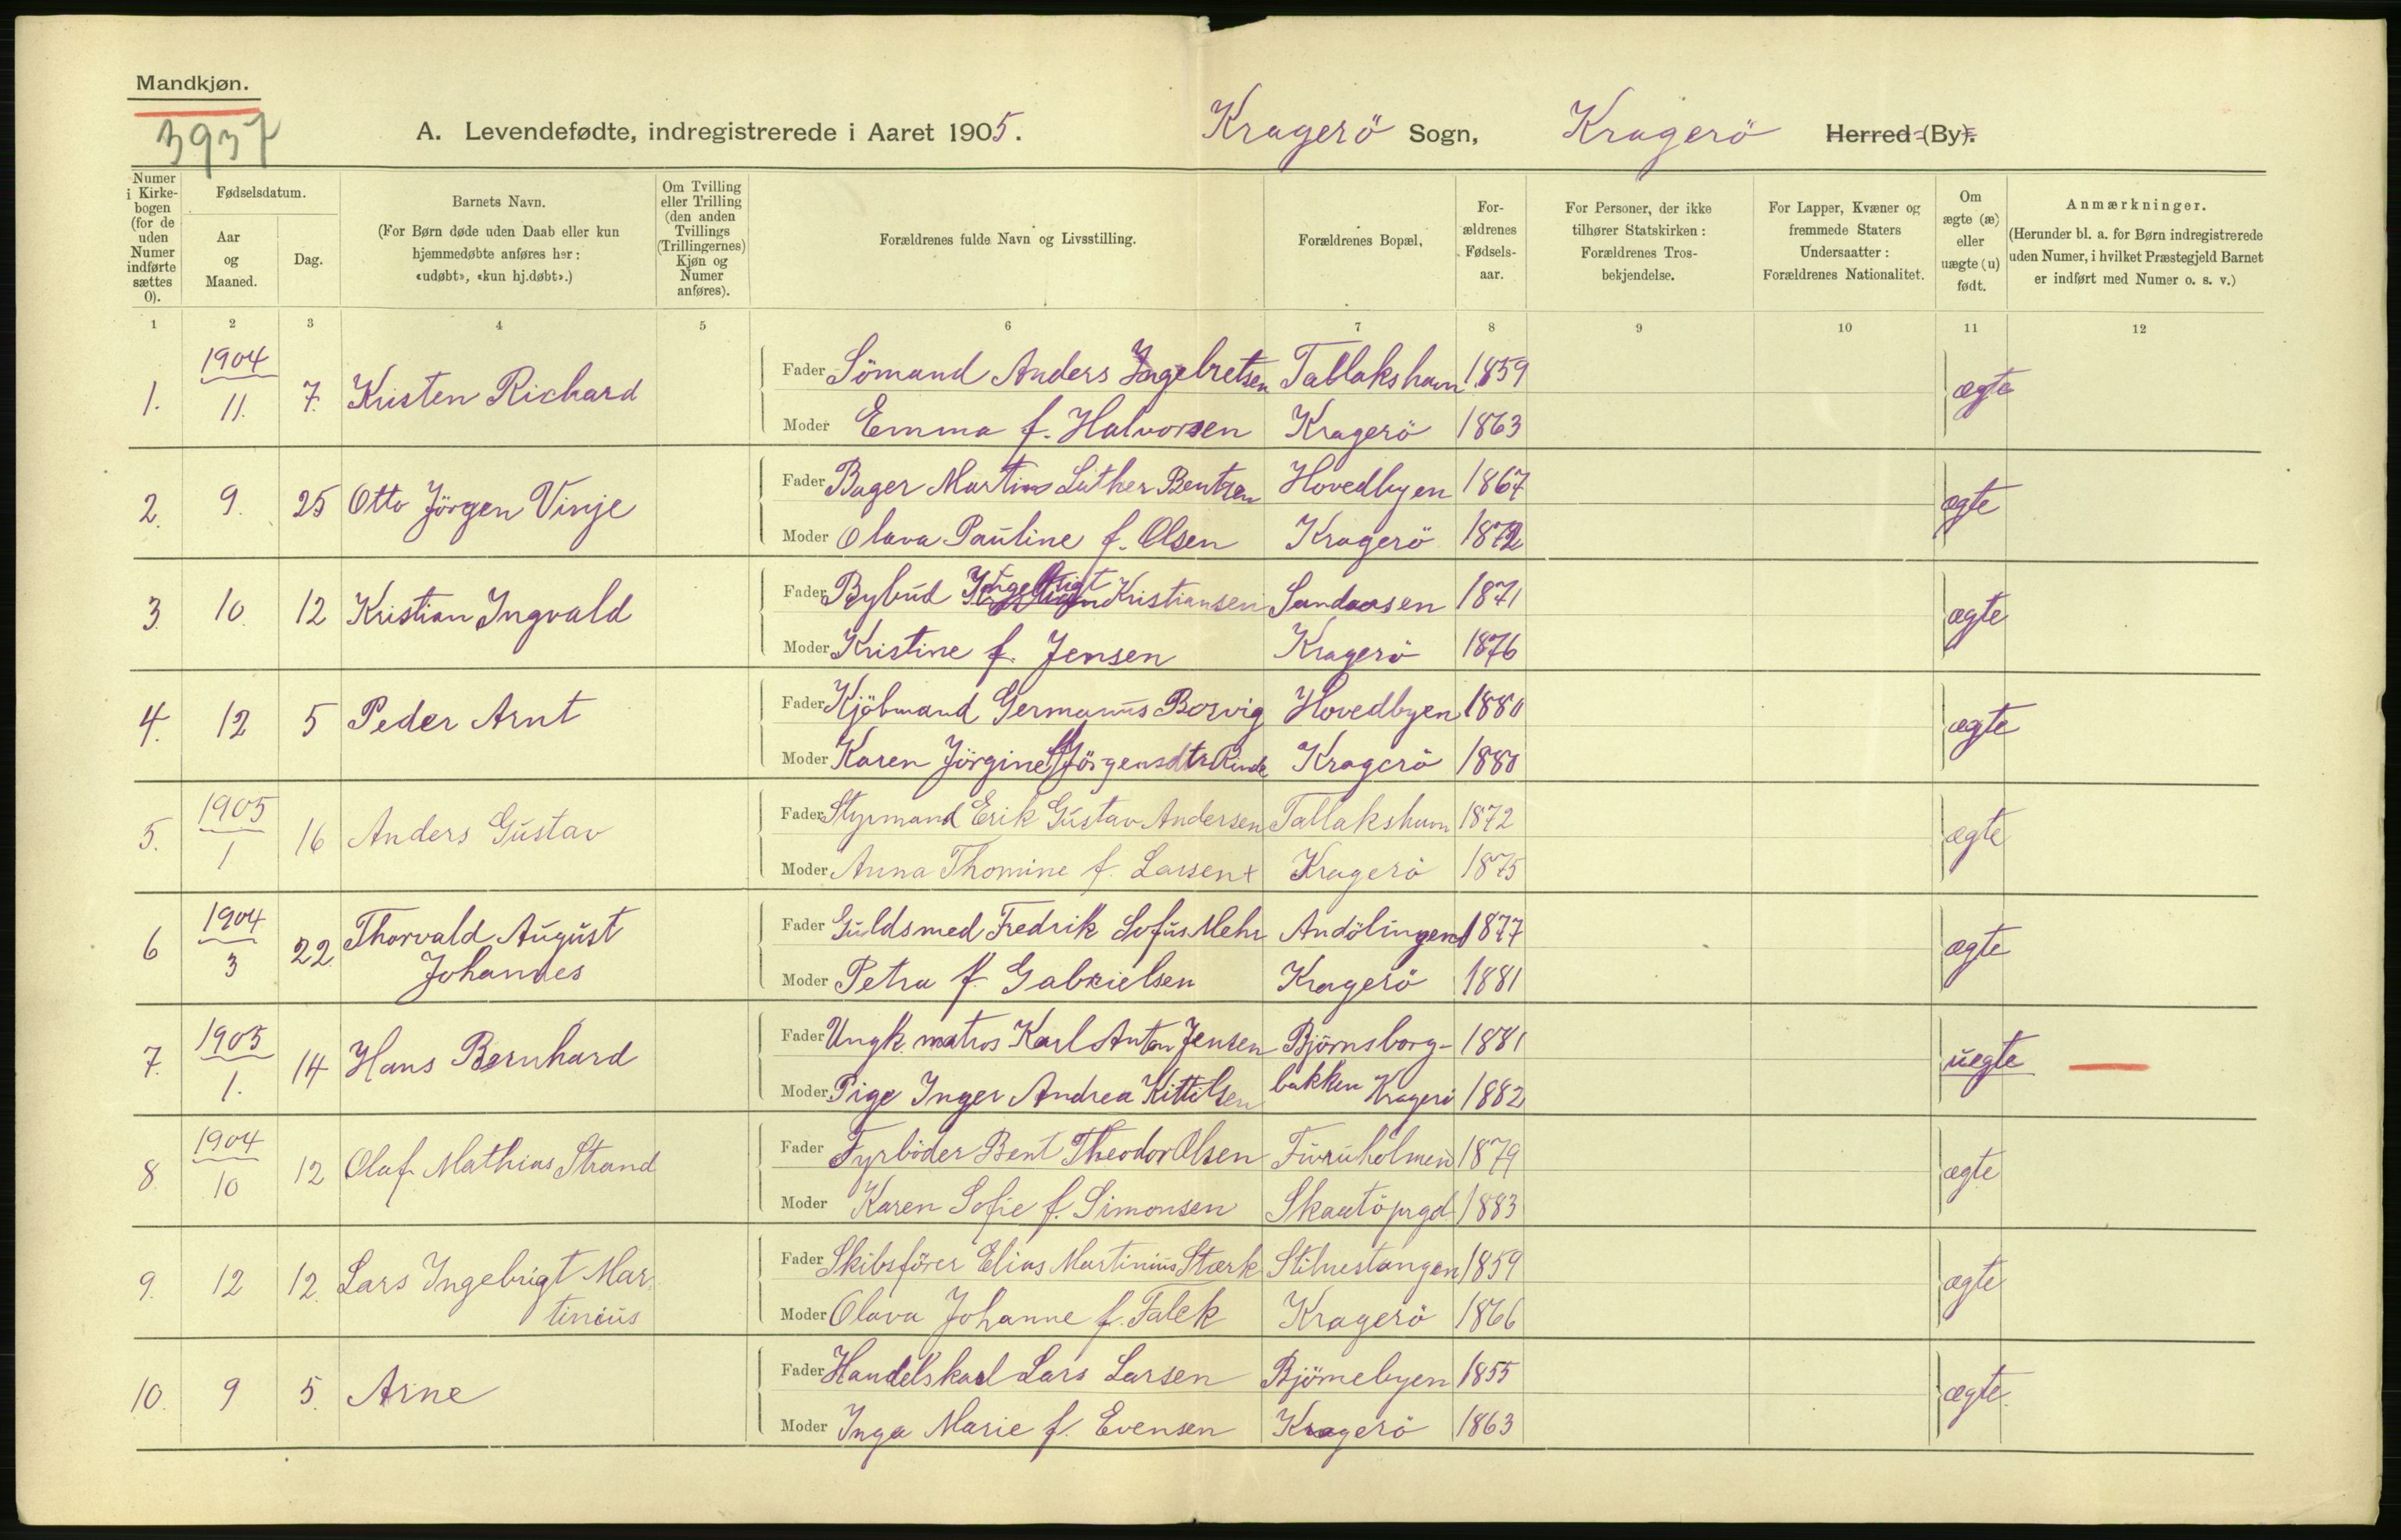 Mandkjøn.
3937
A. Levendefødte, indregistrerede i Aaret 1905. Kragerö Sogn, Kragerö Herred (By).
Numer i Kirkebogen (for de uden Numer indførte sættes 0).
Fødselsdatum.
Aar og Maaned.
Dag.
Barnets Navn.
(For Børn døde uden Daab eller kun hjemmedøbte anføres her: «udøbt», «kun hj.døbt».)
Om Tvilling eller Trilling (den anden Tvillings (Trillingernes) Kjøn og Numer anføres).
Forældrenes fulde Navn og Livsstilling.
Forældrenes Bopæl,
Forældrenes Fødselsaar.
For Personer, der ikke tilhører Statskirken: Forældrenes Trosbekjendelse.
For Lapper, Kvæner og fremmede Staters Undersaatter: Forældrenes Nationalitet.
Om ægte (æ) eller uægte (u) født.
Anmærkninger.
(Herunder bl. a. for Børn indregistrerede uden Numer, i hvilket Præstegjeld Barnet er indført med Numer o. s. v.)
1 2 3 4 5 6 7 8 9 10 11 12
1. 1904 11. 7. Kristen Richard
Fader Sömand Anders Ingebretsen Tallakshavn 1859 ægte
Moder Emma f. Halvorsen Kragerö 1863
2. 9. 25 Otto Jörgen Vinje
Fader Bager Martins Luther Bentzen Hovedbyen 1867 ægte
Moder Olava Pauline f. Olsen Kragerö 1872
3. 10. 12 Kristian Ingvald
Fader Bybud Kristiansen Sandaasen 1871 ægte
Moder Kristine f. Jensen Kragerö 1876
4. 12 5 Peder Arnt
Fader Kjöbmand Germanus Borvig Hovedbyen 1880 ægte
Moder Karen Jörgine f. Jörgensdtr Rinde Kragerö 1880
5. 1905 1 16 Anders Gustav
Fader Styrmand Erik Gustav Andersen Tallakshavn 1872 ægte
Moder Anna Thomine f. Larsen + Kragerö 1875
6 1904 3 22. Thorvald August Johannes
Fader Guldsmed Fredrik Sofus Mehr Andölingen 1877 ægte
Moder Petra f. Gabrielsen Kragerö 1881
7. 1905 1. 14 Hans Bernhard
Fader Ungk. matros Karl Anton Jensen Björnsborg- 1881 uegte
Moder Pige Inger Andrea Kittilsen bakken Kragerö 1882
8. 1904 10 12 Olaf Mathias Strand
Fader Fyrböder Bent Theodor Olsen Furuholmen 1879 ægte
Moder Karen Sofie f. Simonsen Skaatöprgd 1883
9. 12 12. Lars Ingebrigt Mar-
tinius
Fader Skibsförer Elias Martinius Stærk Stilnestangen 1859 ægte
Moder Olava Johanne f. Falck Kragerö 1866
10. 9 5. Arne
Fader Handelskarl Lars Larsen Björnebyen 1855 ægte.
Moder Inga Marie f. Evensen Kragerö 1863